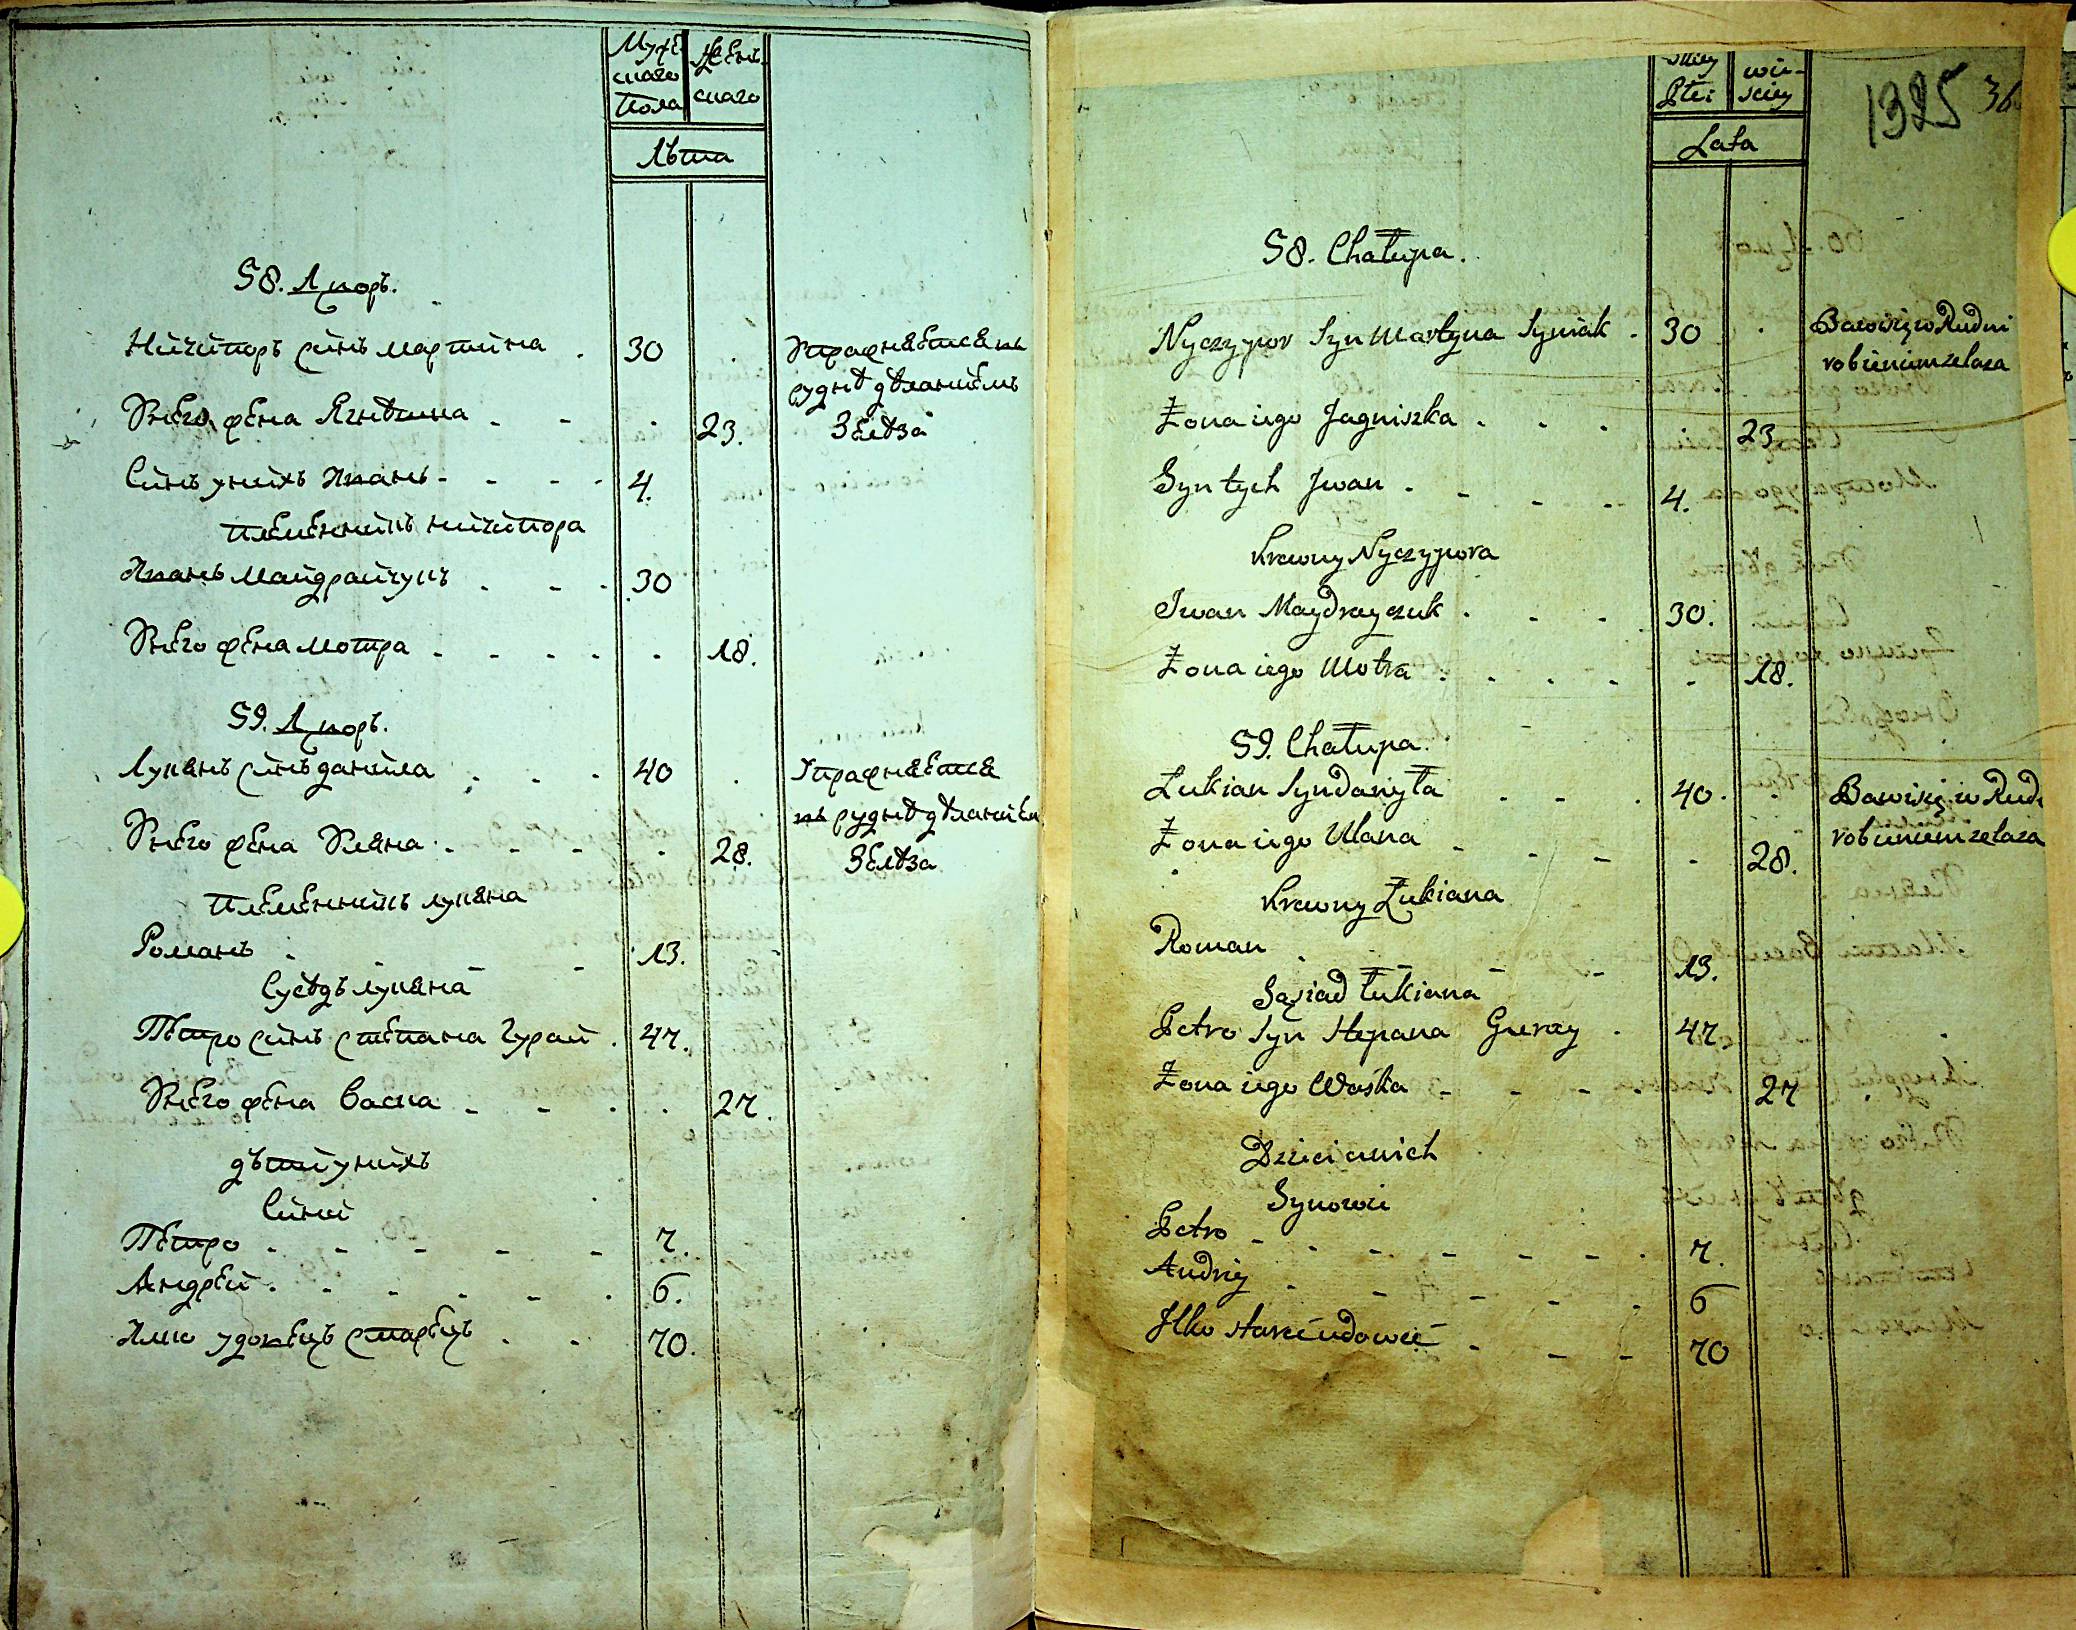 Мужескаго Пола
Женскаго
Лѣта
58. Дворъ.
Ничипоръ синъ мартина . 30 . Упражняется въ
руднѣ дѣланиемъ
Унего жена Ягнѣшка - - . 23. Зелѣза
Синъ унихъ Иванъ - - - - 4.
племенникъ ничипора
Иванъ Майдрайчукъ . - . 30
Унего жена мотра - - - - . 18.
59. Дворъ.
Лукянъ синъ данила . . . 40 . Упражняется
въ руднѣ дѣланием
Унего жена Уляна . - - - . 28. Зелѣза
племенникъ лукяна
Романъ - - - 13.
Сусѣдъ лукяна
Петро синъ степана Гурай . 47.
Унего жена Васка - - . . 27.
дѣти унихъ
Сини
Петро - - - - - - 7.
Андрей . - - - - . 6.
Илко удовецъ старецъ . . - 70.
Płci
wieskiey
Lata
1325
36
58. Chałupa.
Nyczypor Syn Martyna Syniak . 30 . Bawisię w Rudni
robieniem zelaza
Żona iego Jagniszka . . . . . 23
Syn tych Jwan . - - - - 4.
Krewny Nyczypora
Iwan Maydrayczuk . . . . 30.
Żona iego Motra . . . - - 18.
59. Chałupa.
Łukian Syn Danyła . - . 40. . Bawisię w Rud
robieniem zelaza
Żona iego Ulana - - - - 28.
Krewny Łukiana
Roman . - - - 13.
Sąsiad Łukiana
Petro Syn Stepana Guray . 47.
Żona iego Waśka - - - . 27
Dzieci u nich
Synowie
Petro - - - - - - . 7.
Andriy - - - - . 6
Jlko starzec wdowiec - - - 70